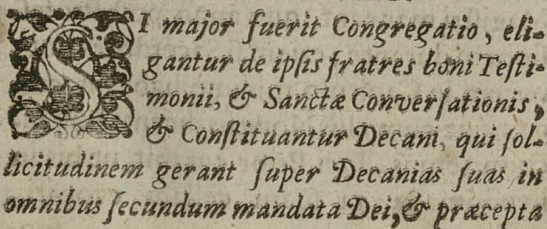 SI major fuerit Congregatio, eli-
gantur de ipsis fratres boni Testi-
monii, & Sanctæ Conversationis,
& Constituantur Decani, qui sol-
licitudinem gerant super Decanias suas in
omnibus secundum mandata Dei, & præcepta